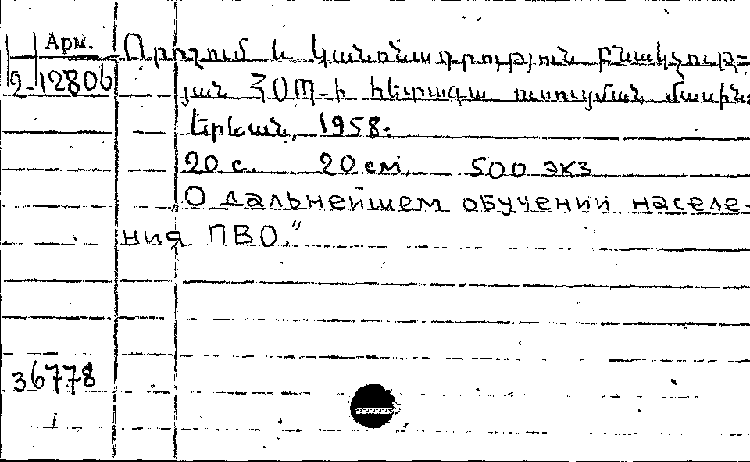 Арм.
2-12806
Որոշում և կանոնադրություն բնակչութ=
յան ՀՕՊ-ի հետագա ուսուցման մասին:
Երևան, 1958.
20 с. 20 см, 500 экз
О дальнейшем обучении населе-
ния ПВО."
36778